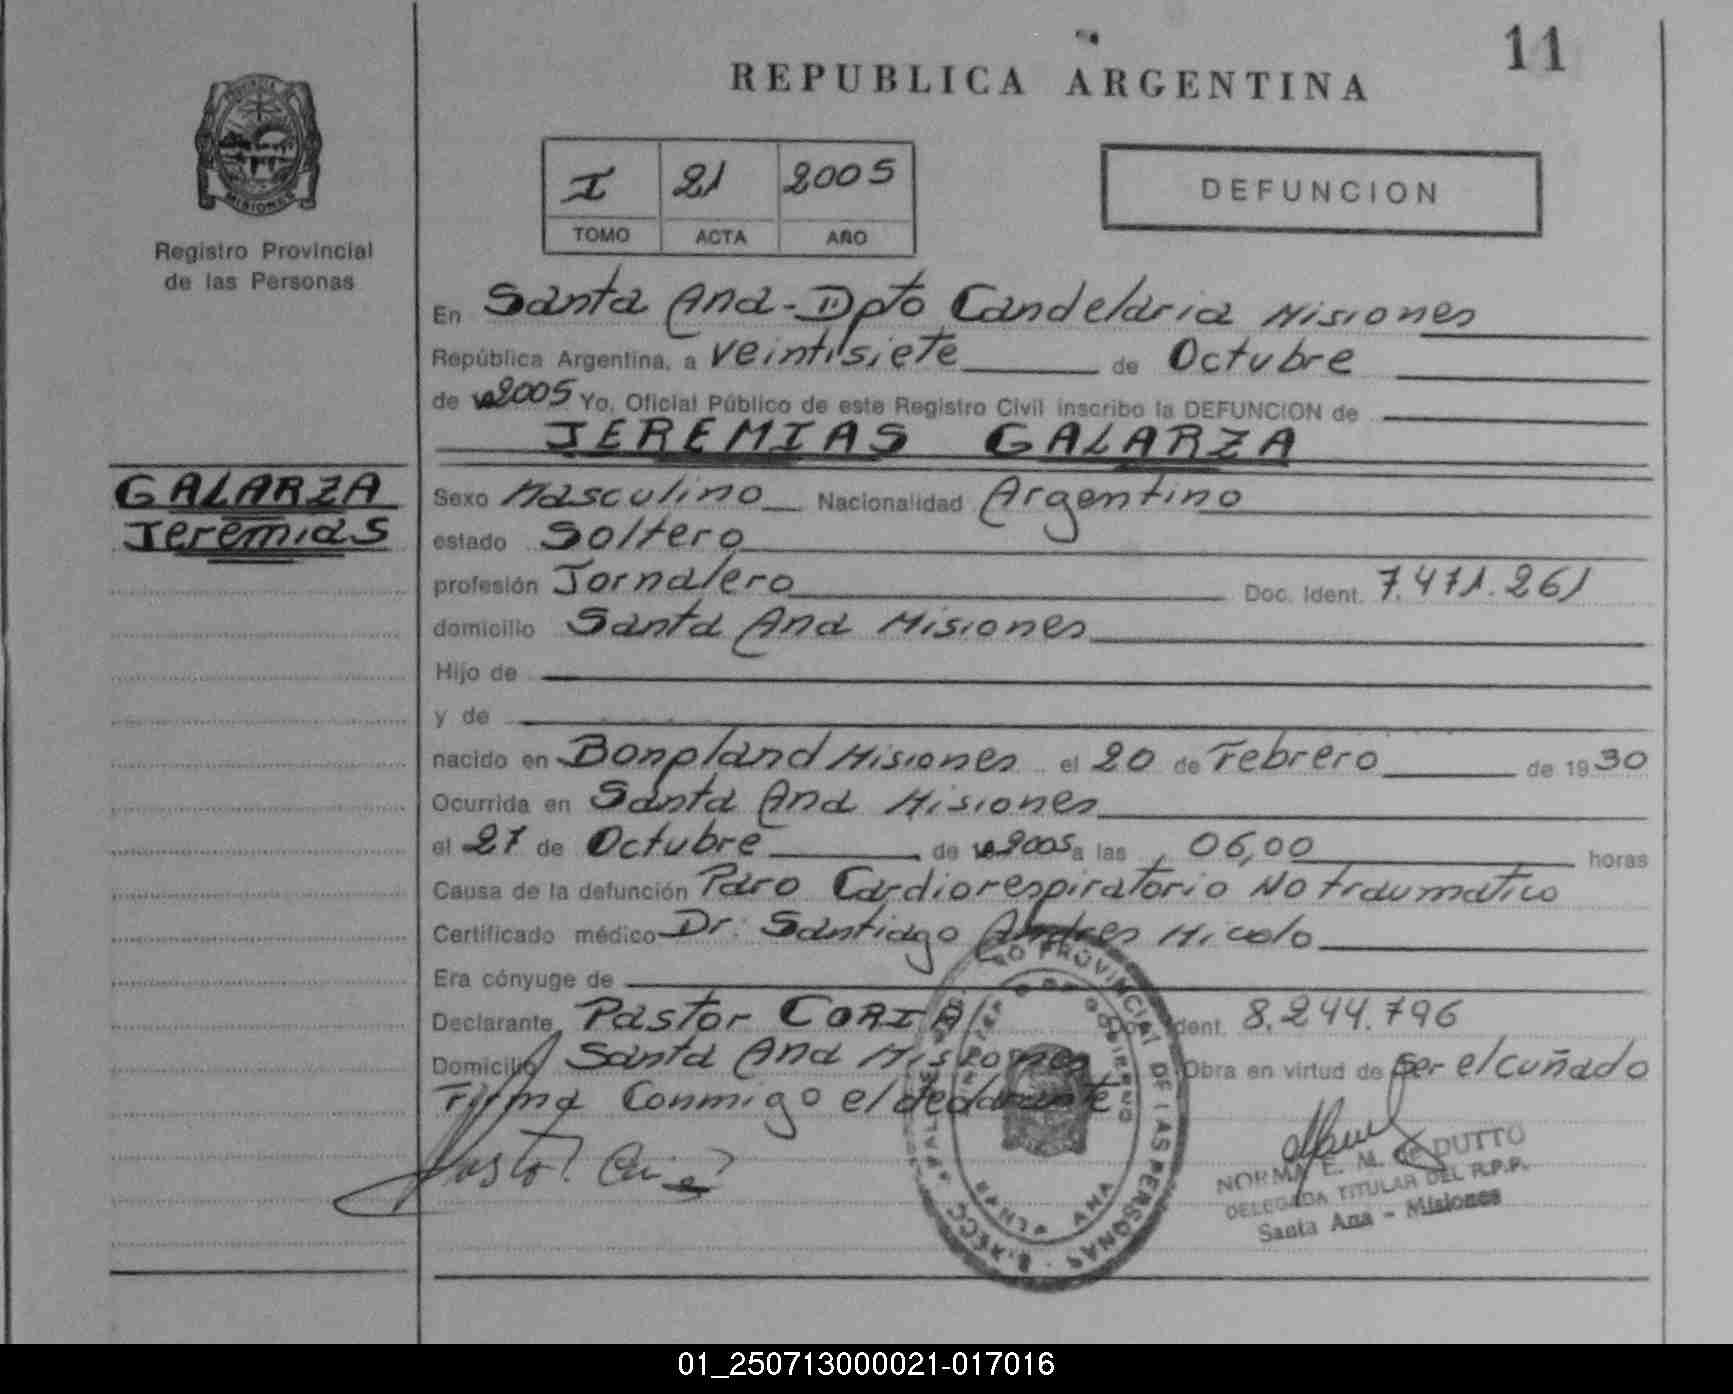 11
REPUBLICA ARGENTINA
PROVINCIA DE
MISIONES
Registro Provincial
de las Personas
I 21 2005
TOMO ACTA AÑO
DEFUNCION
En Santa Ana - Dpto Candelaria Misiones
República Argentina, a veintisiete de Octubre
de 2005 Yo, Oficial Público de este Registro Civil inscribo la DEFUNCION de
JEREMIAS GALARZA
GALARZA
Jeremias
Sexo Masculino Nacionalidad Argentino
estado Soltero
profesión Jornalero Doc. Ident. 7.471.261
domicilio Santa Ana Misiones
Hijo de
y de
nacido en Bonpland Misiones el 20 de Febrero de 1930
Ocurrida en Santa Ana Misiones
el 27 de Octubre de 2005 a las 06,00 horas
Causa de la defunción Paro Cardiorespiratorio No traumatico
Certificado médico Dr: Santiago Andres Micolo
Era cónyuge de
Declarante Pastor CORIA Doc. Ident. 8.244.796
Domicilio Santa Ana Misiones Obra en virtud de ser el cuñado
Firma Conmigo el declarante
Pastor
NORMA E. M. de DUTTO
DELEGADA TITULAR DEL R.P.P.
Santa Ana - Misiones
PROVINCIAL DE LAS PERSONAS
DE GOBIERNO
ANA
01_250713000021-017016